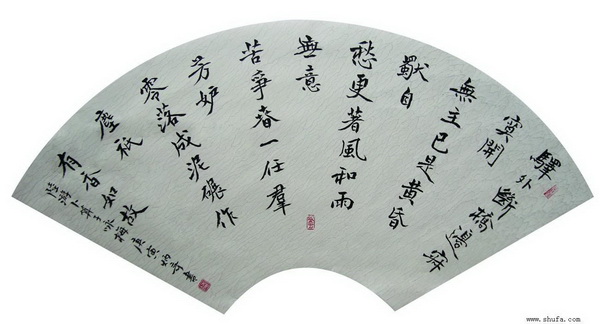 驛外斷橋邊寂
寞開
無主已是黃昏
獨自
愁更著風和雨
無意
苦爭春一任羣
芳妒
零落成泥碾作
塵祇
有香如故
陸游卜算子咏梅 庚寅 書
www.shufa.com